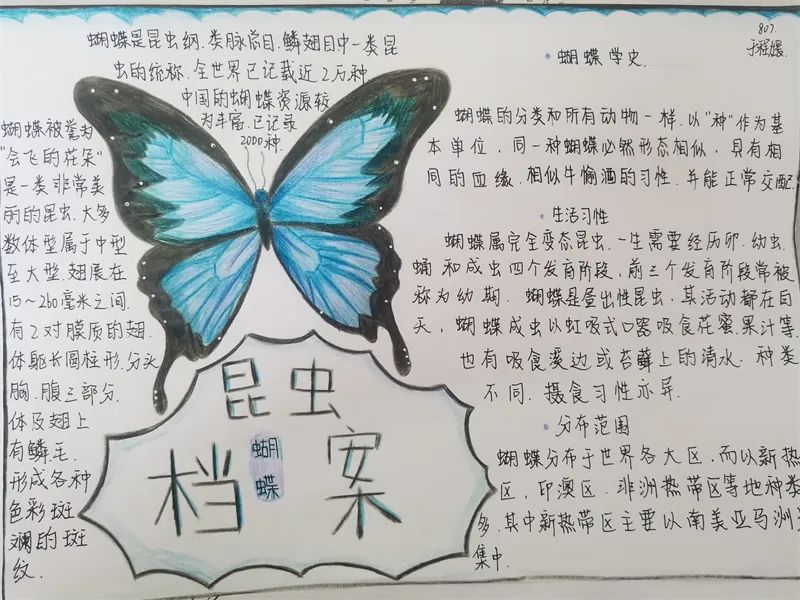 807.
于程媛.
蝴蝶是昆虫纲.类脉总目.鳞翅目中一类昆
虫的统称.全世界已记载近2万种
中国的蝴蝶资源较
为丰富.已记录
2000种.
蝴蝶被誉为
"会飞的花朵"
是一类非常美
丽的昆虫.大多
数体型属于中型
至大型.翅展在
15~260毫米之间.
有2对膜质的翅.
体躯长圆柱形.分头
胸.腹三部分.
体及翅上
有鳞毛.
形成各种
色彩斑
斓的斑
纹.
昆虫
档案
蝴蝶
蝴蝶学史.
蝴蝶的分类和所有动物一样.以"种"作为基
本单位,同一种蝴蝶必然形态相似,具有相
同的血缘.相似生愉洒的习性.并能正常交配
生活习性
蝴蝶属完全变态昆虫.一生需要经历卵.幼虫.
蛹和成虫四个发育阶段.前三个发育阶段常被
称为幼期.蝴蝶是昼出性昆虫.其活动都在白
天,蝴蝶成虫以虹吸式口器吸食花蜜.果汁等.
也有吸食溪边或苔藓上的清水.种类
不同.摄食习性亦异.
分布范围
蝴蝶分布于世界各大区.而以新热
区,印澳区.非洲热带区等地种类
多.其中新热带区主要以南美亚马洲
集中.